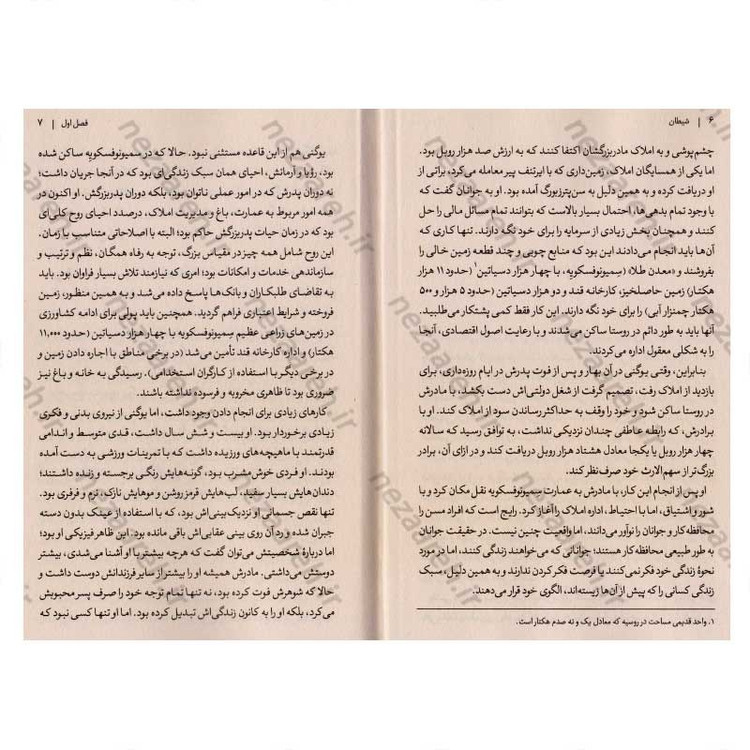 ۶ | شیطان
چشم‌پوشی و به املاک مادربزرگشان اکتفا کنند که به ارزش صد هزار روبل بود.
اما یکی از همسایگان املاک، زمین‌داری که با ایرتنف پیر معامله می‌کرد، براتی از
او دریافت کرده و به همین دلیل به سن‌پترزبورگ آمده بود. او به جوانان گفت که
با وجود تمام بدهی‌ها، احتمال بسیار بالاست که بتوانند تمام مسائل مالی را حل
کنند و همچنان بخش زیادی از سرمایه را برای خود نگه دارند. تنها کاری که
آن‌ها باید انجام می‌دادند این بود که منابع چوبی و چند قطعه زمین خالی را
بفروشند و (معدن طلا) سِمیونوفسکویه، با چهار هزار دسیاتین۱ (حدود ۱۱ هزار
هکتار) زمین حاصلخیز، کارخانه قند و دو هزار دسیاتین (حدود ۵ هزار و ۵۰۰
هکتار چمنزار آبی) را برای خود نگه دارند. این کار فقط کمی پشتکار می‌طلبید.
آنها باید به طور دائم در روستا ساکن می‌شدند و با رعایت اصول اقتصادی، آنجا
را به شکلی معقول اداره می‌کردند.
بنابراین، وقتی یوگنی در آن بهار و پس از فوت پدرش در ایام روزه‌داری، برای
بازدید از املاک رفت، تصمیم گرفت از شغل دولتی‌اش دست بکشد، با مادرش
در روستا ساکن شود و خود را وقف به حداکثر رساندن سود از املاک کند. او با
برادرش، که رابطه عاطفی چندان نزدیکی نداشت، به توافق رسید که سالانه
چهار هزار روبل یا یکجا معادل هشتاد هزار روبل دریافت کند و در ازای آن، برادر
بزرگ‌تر از سهم‌الارث خود صرف نظر کند.
او پس از انجام این کار، با مادرش به عمارت سِمیونوفسکویه نقل مکان کرد و با
شور و اشتیاق، اما با احتیاط، اداره املاک را آغاز کرد. رایج است که افراد مسن را
محافظه‌کار و جوانان را نوآور می‌دانند، اما واقعیت چنین نیست. در حقیقت جوانان
به طور طبیعی محافظه‌کار هستند؛ جوانانی که می‌خواهند زندگی کنند، اما در مورد
نحوهٔ زندگی خود فکر نمی‌کنند یا فرصت فکر کردن ندارند و به همین دلیل، سبک
زندگی کسانی را که پیش از آن‌ها زیسته‌اند، الگوی خود قرار می‌دهند.
۱. واحد قدیمی مساحت در روسیه که معادل یک و نه صدم هکتار است.
فصل اول | ۷
یوگنی هم از این قاعده مستثنی نبود. حالا که در سمیونوفسکویه ساکن شده
بود، رؤیا و آرمانش، احیای همان سبک زندگی‌ای بود که در آنجا جریان داشت؛
نه دوران پدرش که در امور عملی ناتوان بود، بلکه دوران پدربزرگش. او اکنون در
همه امور مربوط به عمارت، باغ و مدیریت املاک، درصدد احیای روح کلی‌ای
بود که در زمان حیات پدربزرگش حاکم بود؛ البته با اصلاحاتی متناسب با زمان.
این روح شامل همه چیز در مقیاس بزرگ، توجه به رفاه همگان، نظم و ترتیب و
سازماندهی خدمات و امکانات بود؛ امری که نیازمند تلاش بسیار فراوان بود. باید
به تقاضای طلبکاران و بانک‌ها پاسخ داده می‌شد و به همین منظور، زمین
فروخته و شرایط اعتباری فراهم گردید. همچنین باید پولی برای ادامه کشاورزی
در زمین‌های زراعی عظیم سِمیونوفسکویه با چهار هزار دسیاتین (حدود ۱۱,۰۰۰
هکتار) و اداره کارخانه قند تأمین می‌شد (در برخی مناطق با اجاره دادن زمین و
در برخی دیگر با استفاده از کارگران استخدامی). رسیدگی به خانه و باغ نیز
ضروری بود تا ظاهری مخروبه و فرسوده نداشته باشند.
کارهای زیادی برای انجام دادن وجود داشت، اما یوگنی از نیروی بدنی و فکری
زیادی برخوردار بود. او بیست و شش سال داشت، قدی متوسط و اندامی
قدرتمند با ماهیچه‌های ورزیده داشت که با تمرینات ورزشی به دست آمده
بودند. او فردی خوش‌مشرب بود، گونه‌هایش رنگی برجسته و زنده داشتند؛
دندان‌هایش بسیار سفید، لب‌هایش قرمز روشن و موهایش نازک، نرم و فرفری بود.
تنها نقص جسمانی او نزدیک‌بینی‌اش بود، که با استفاده از عینک بدون دسته
جبران شده و رد آن روی بینی عقابی‌اش باقی مانده بود. این ظاهر فیزیکی او بود؛
اما دربارهٔ شخصیتش می‌توان گفت که هرچه بیشتر با او آشنا می‌شدی، بیشتر
دوستش می‌داشتی. مادرش همیشه او را بیشتر از سایر فرزندانش دوست داشت و
حالا که شوهرش فوت کرده بود، نه تنها تمام توجه خود را صرف پسر محبوبش
می‌کرد، بلکه او را به کانون زندگی‌اش تبدیل کرده بود. اما او تنها کسی نبود که
nezaaleh.ir